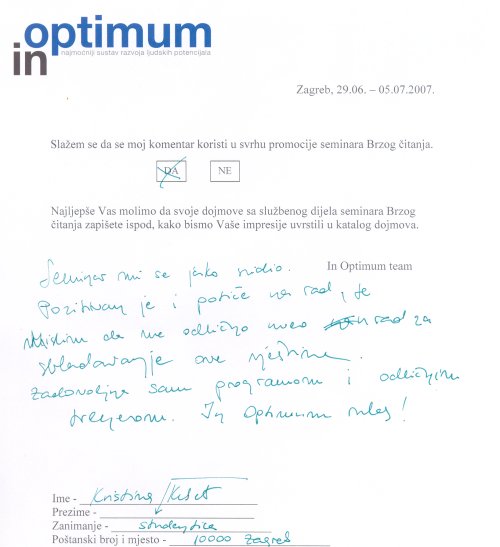 in optimum
najmoćniji sustav razvoja ljudskih potencijala
Zagreb, 29.06. – 05.07.2007.
Slažem se da se moj komentar koristi u svrhu promocije seminara Brzog čitanja.
DA NE
Najljepše Vas molimo da svoje dojmove sa službenog dijela seminara Brzog
čitanja zapišete ispod, kako bismo Vaše impresije uvrstili u katalog dojmova.
In Optimum team
Seminar mi se jako svidio.
Pozitivan je i potiče na rad, te
mislim da me odlično uveo u rad za
svladavanje ove vještine.
Zadovoljna sam programom i odličnim
trenerom. In Optimum rules!
Ime - Kristina
Prezime -
Zanimanje - studentica
Poštanski broj i mjesto - 10000 Zagreb